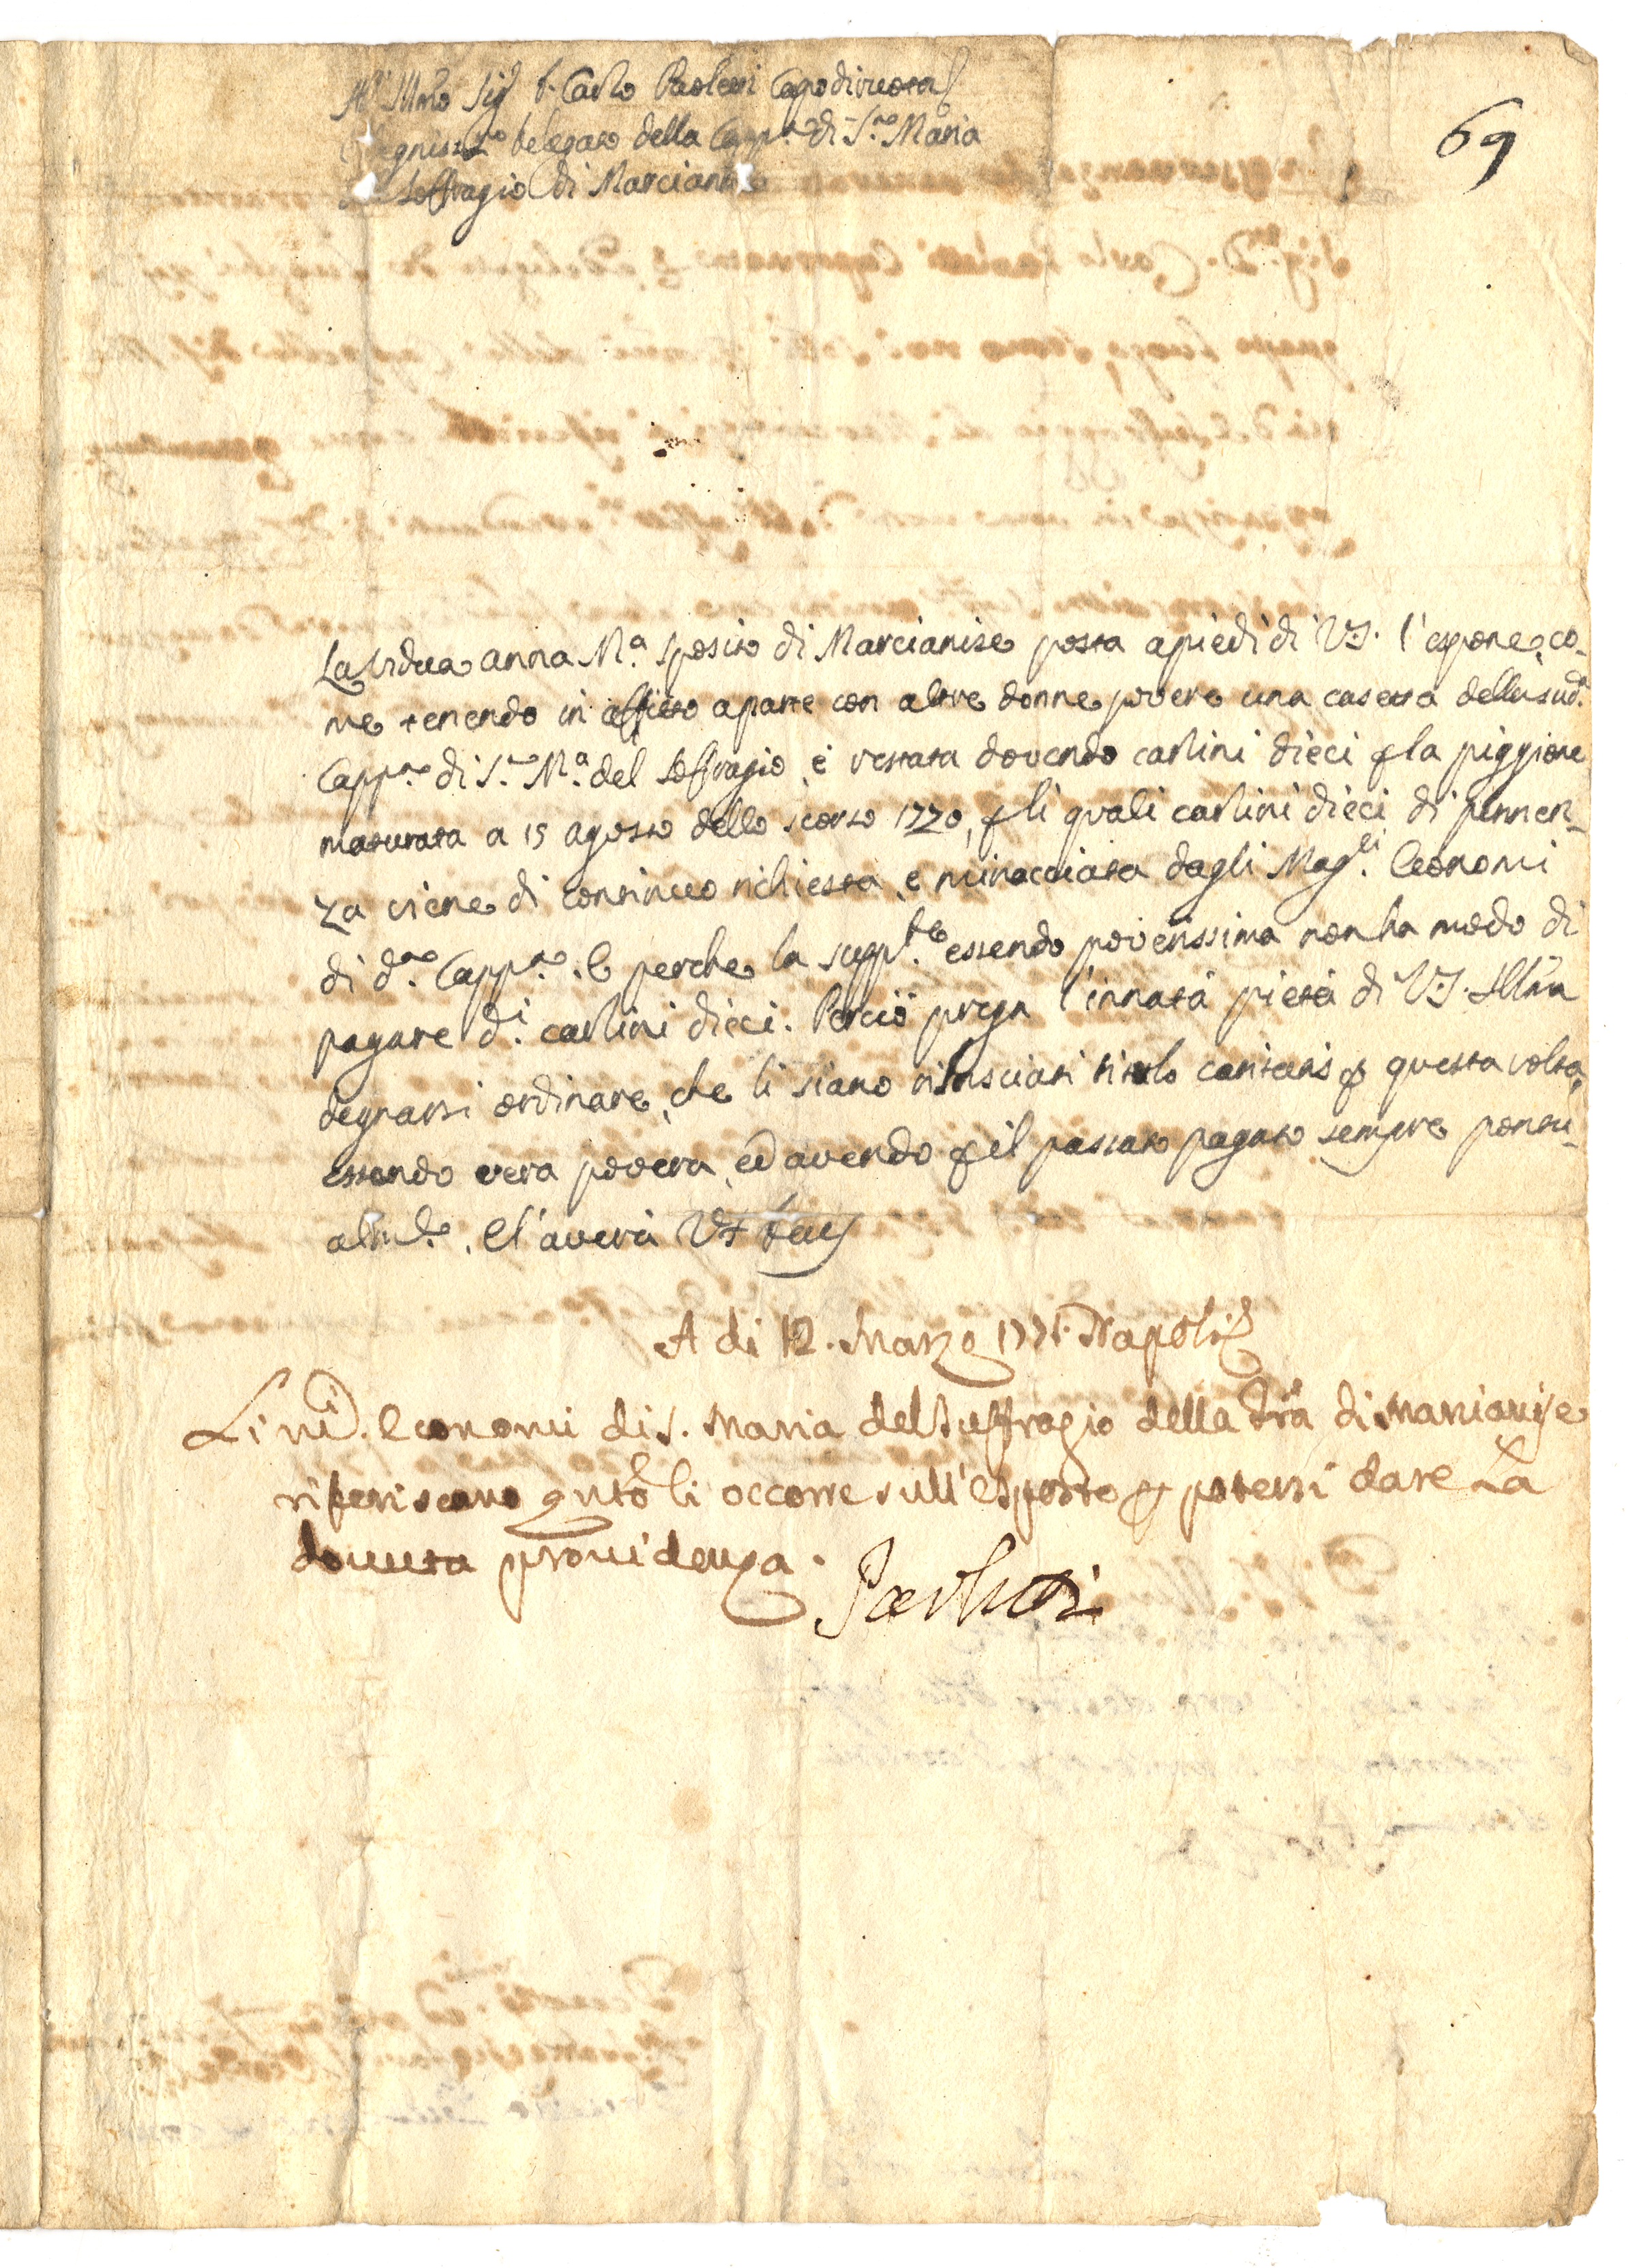 All' Ill.mo Sig.r D. Carlo Paoletti Caporuota
Degniss.mo Delegato della Capp.a di S.a Maria
Soffragio di Marcianise
69
La Vidua Anna M.a Sposito di Marcianise posta a piedi di V.S. l'espone, co-
me tenendo in affitto a parte con altre donne povere una casetta della sud.a
Capp.a di S.a M.a del Soffragio, è restata dovendo carlini dieci p la piggione
maturata a 15 agosto dello scorso 1770, p li quali carlini dieci di pennen-
za viene di continuo richiesta, e minacciata dagli Mag.ci Economi
di d.a Capp.a. E perche la supp.te essendo poverissima non ha modo di
pagare d.i carlini dieci. Perciò prega l'innata pietà di V.S. Ill.ma
degnarsi ordinare, che li siano rilasciati titulo caritatis p questa volta,
essendo vera povera, ed avendo p il passato pagato sempre pontu-
alm.te. E l'averà Ut Deus
A di 12. Marzo 1771. Napoli
Li m.ci Economi di S. Maria del Suffragio della Trã di Marcianise
riferiscano qnto li occorre sull'esposto p potersi dare La
douuta prouidenza.
Paoletti